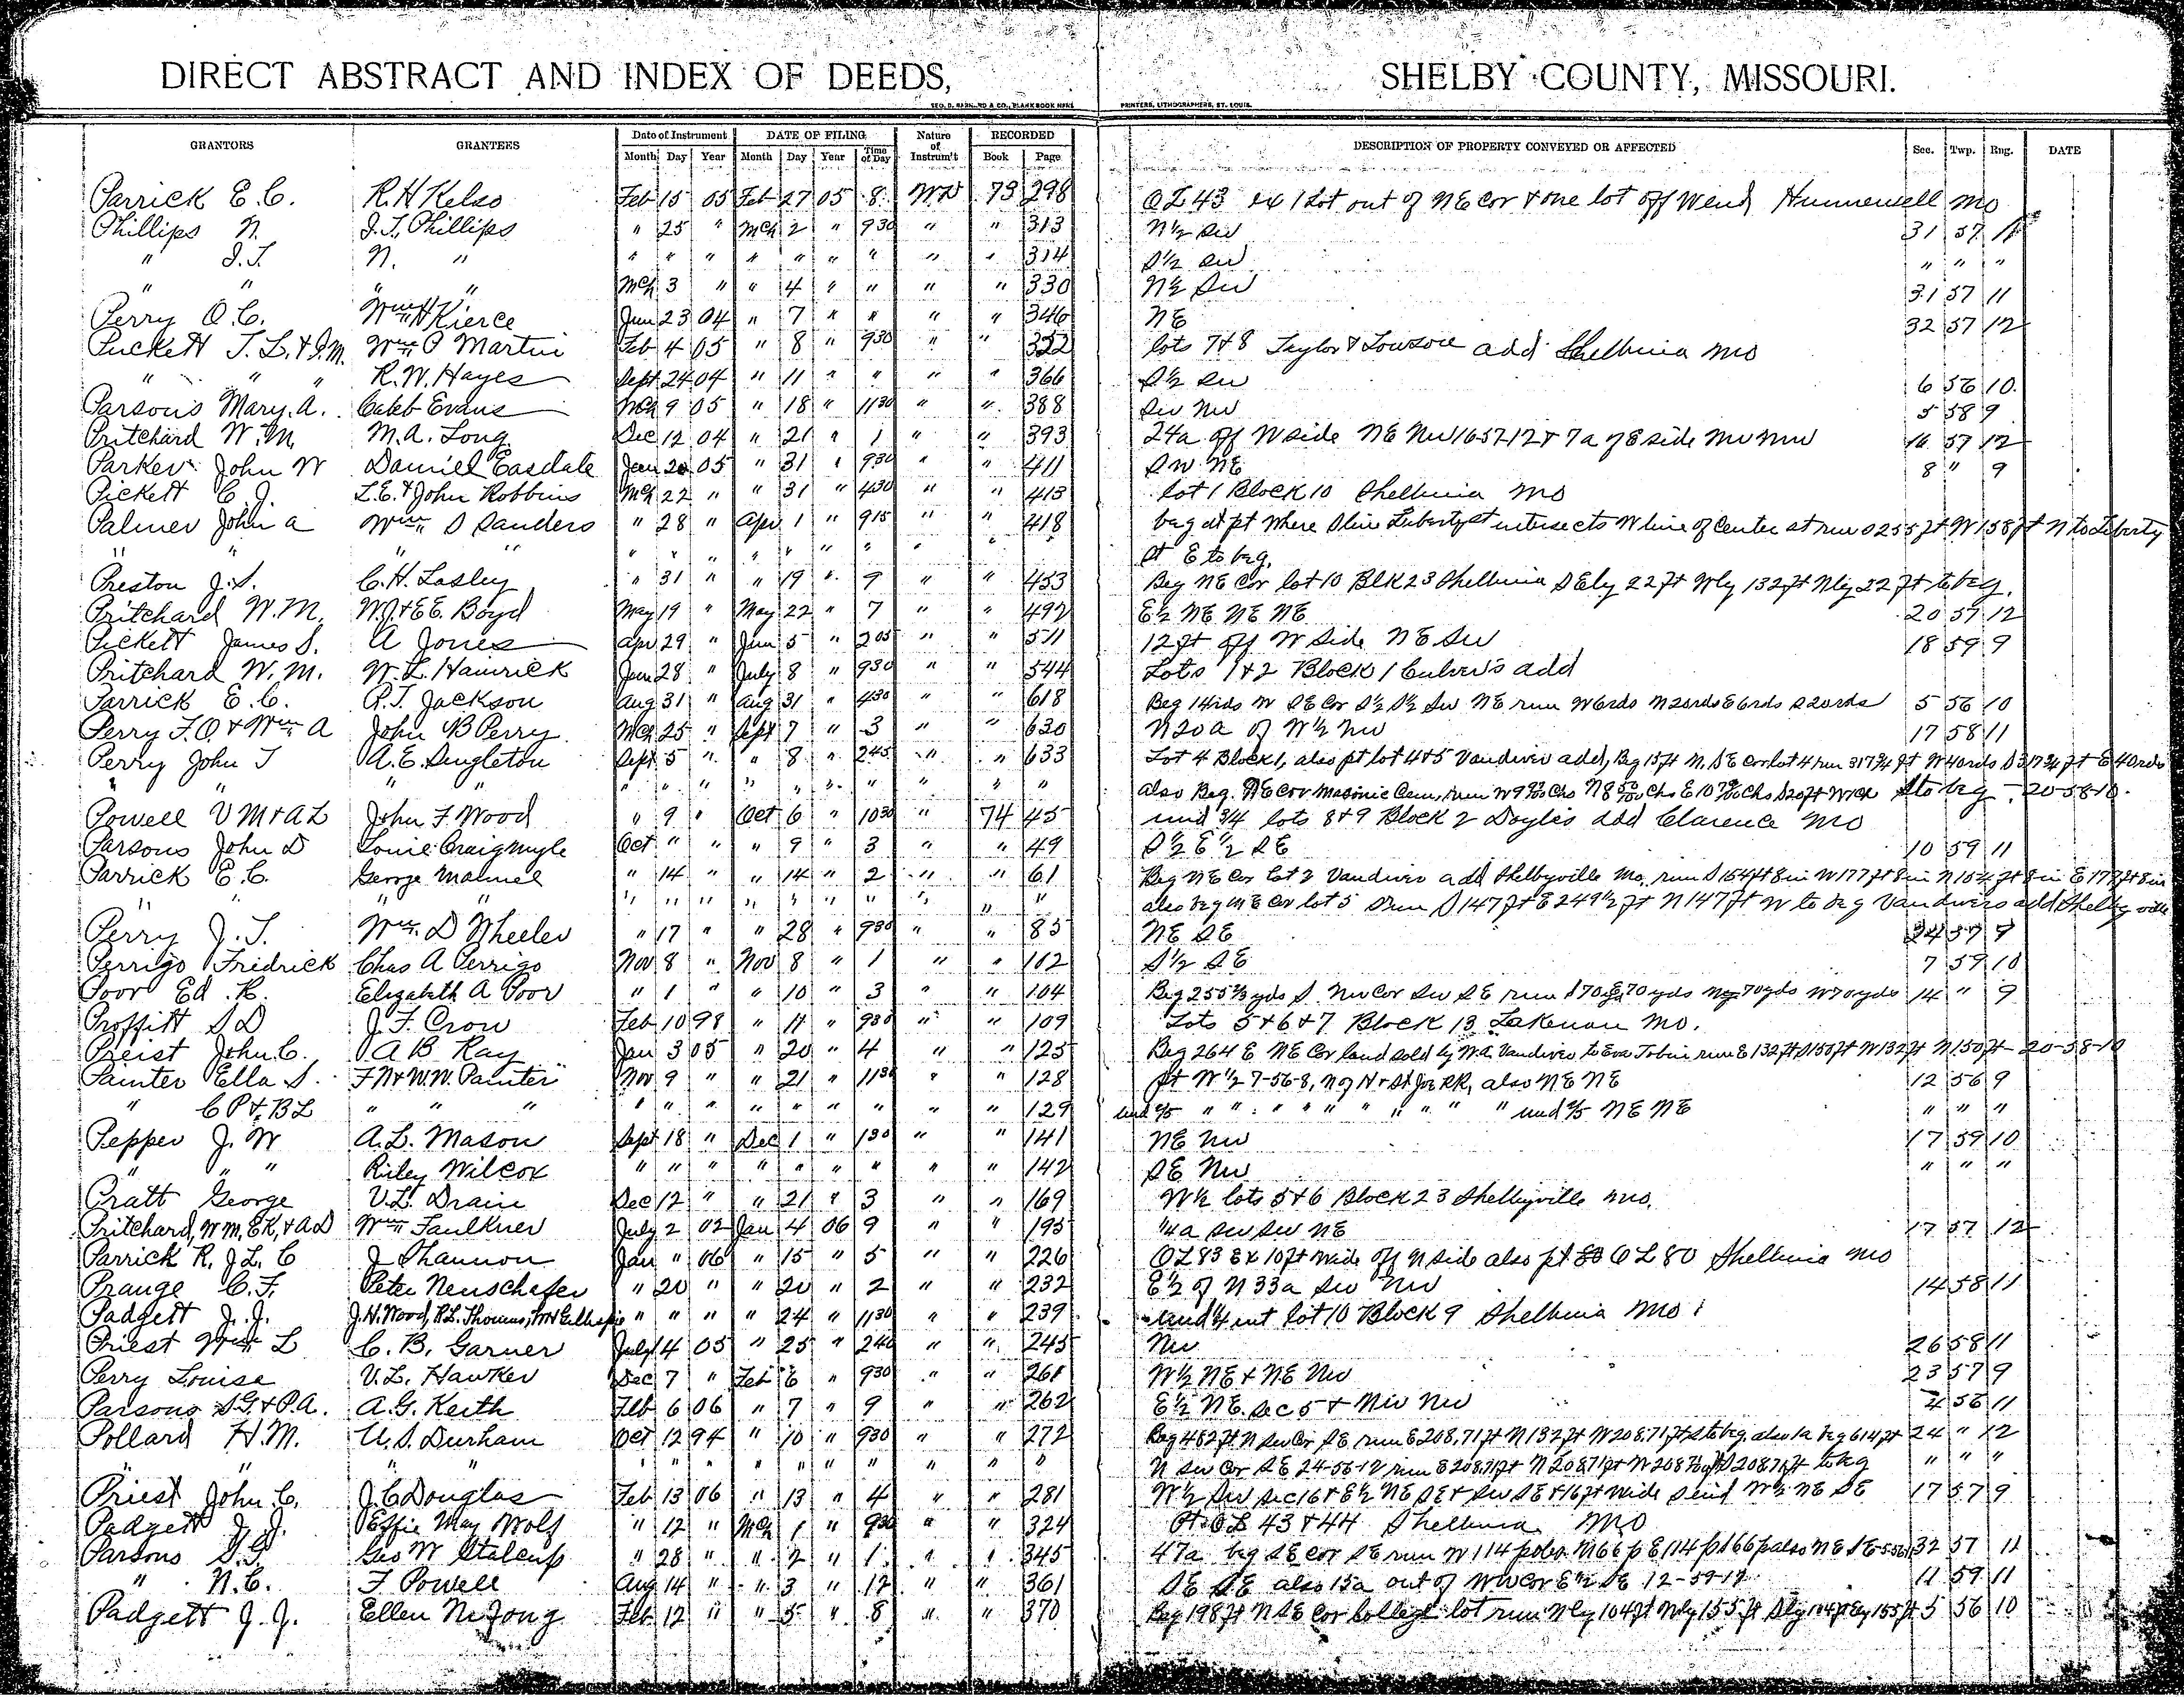 DIRECT ABSTRACT AND INDEX OF DEEDS, SHELBY COUNTY, MISSOURI.
GEO. D. BARNARD & CO., BLANK BOOK MFRS. PRINTERS, LITHOGRAPHERS, ST. LOUIS.
GRANTORS GRANTEES Date of Instrument DATE OF FILING Nature of Instrum't RECORDED DESCRIPTION OF PROPERTY CONVEYED OR AFFECTED Sec. Twp. Rng. DATE
Month Day Year Month Day Year Time of Day Book Page
Parrick E.C. R.H Kelso Feb 15 05 Feb 27 05 8 WD 73 298 OL 43 ex 1 Lot out of NE Cor & one lot off W end Hunnewell Mo
Phillips N. J.T. Phillips " 25 " Mch 2 " 930 " " 313 N½ SW 31 57 11
" J.T. N. " " " " " " " " " " 314 S½ SW " " "
" " " " Mch 3 " " 4 " " " " 330 N½ SW 31 57 11
Perry O.C. Wm H Kierce Jun 23 04 " 7 " " " " 346 NE 32 57 12
Puckett T.L. & J.M. Wm P Martin Feb 4 05 " 8 " 930 " " 352 lots 7&8 Taylor & Towson add Shelbina Mo
" " " R.W. Hayes Sept 24 04 " 11 " " " " 366 S½ SW 6 56 10
Parsons Mary A. Caleb Evans Mch 9 05 " 18 " 1130 " " 388 SW NW 5 58 9
Pritchard W.M. M.A. Long Dec 12 04 " 21 " 1 " " 393 24a off W side NE NW 16 57-12 & 7a of E side NW NW 16 57 12
Parker John W Daniel Easdale Jan 20 05 " 31 " 930 " " 411 SW NE 8 " 9
Pickett C.J. L.E. & John Robbins Mch 22 " " 31 " 430 " " 413 lot 1 Block 10 Shelbina Mo
Palmer John A Wm S Sanders " 28 " Apr 1 " 915 " " 418 beg at pt where S line Liberty st intersects W line of Center st run S 255 ft W 158 ft N to Liberty
" " " " " " " " " " " " " st E to beg.
Preston J.S. C.H. Lasley " 31 " " 19 " 9 " " 453 Beg NE Cor lot 10 Blk 23 Shelbina S Ely 22 ft Wly 132 ft Nly 22 ft to beg.
Pritchard W.M. W.J. & E.E. Boyd May 19 " May 22 " 7 " " 492 E½ NE NE NE 20 57 12
Pickett James S. A Jones Apr 29 " Jun 5 " 205 " " 511 12 ft off W side NE SW 18 59 9
Pritchard W.M. W.L. Hamrick Jun 28 " July 8 " 930 " " 544 Lots 1&2 Block 1 Culver's add
Parrick E.C. R.T. Jackson Aug 31 " Aug 31 " 430 " " 618 Beg 14rds W SE Cor S½ S½ SW NE run W 6rds N 20rds E 6rds S 20rds 5 56 10
Perry F.O & Wm A John B Perry Mch 25 " Sept 7 " 3 " " 630 N 20a of W½ NW 17 58 11
Perry John T A.E. Singleton Sept 5 " " 8 " 245 " " 633 Lot 4 Block 1, also pt lot 4&5 Vandiver add, Beg 15 ft N. SE Cor lot 4 run 317¾ ft W 40rds S 317¾ ft E 40rds
" " " " " " " " " " " " " also Beg. NE Cor Masonic Cem, run W to beg - 20-58-10.
Powell V M & A L John F Wood " 9 " Oct 6 " 1030 " 74 45 und ¾ lots 8&9 Block 2 Doyles add Clarence Mo
Parsons John D Louie Craigmyle Oct " " " 9 " 3 " " 49 S½ E½ SE 10 59 11
Parrick E.C. George Mahmel " 14 " " 14 " 2 " " 61 Beg NE Cor Lot 2 Vandiver add Shelbyville Mo, run S 154 ft 8 in W 177 ft 8 in N 154 ft 8 in E 177 ft 8 in
" " " " " " " " " " " also beg NE Cor lot 5 run S 147 ft E 249½ ft N 147 ft W to beg Vandivers add Shelbyville
Perry J.T. Wm. D Wheeler " 17 " " 28 " 930 " " 85 NE SE 24 57 9
Perrigo Fridrick Chas A Perrigo Nov 8 " Nov 8 " 1 " " 102 S½ SE 7 59 10
Poor Ed. R. Elizabeth A Poor " 1 " " 10 " 3 " " 104 Beg 255⅔ yds S. NW Cor SW SE run S 70 yds E 70 yds N 70 yds W 70 yds 14 " 9
Proffitt S D J.F. Crow Feb 10 98 " 11 " 930 " " 109 Lots 5&6&7 Block 13 Lakenan Mo.
Preist John C. A B Ray Jan 3 05 " 20 " 4 " " 125 Beg 264 E NE Cor land sold by W.A. Vandiver to Eva Tobin run E 132 ft S 150 ft W 132 ft N 150 ft - 20-58-10
Painter Ella S. F N & W.W. Painter Nov 9 " " 21 " 1130 " " 128 pt W½ 7-56-8, N of H & St Joe RR, also NE NE 12 56 9
" C P & B L " " " " " " " " " " " " 129 und ⅖ " " " " " " " " " " und ⅖ NE NE " " "
Pepper J. W A.L. Mason Sept 18 " Dec 1 " 130 " " 141 NE NW 17 59 10
" " " Riley Wilcox " " " " " " " " " 142 SE NW " " "
Pratt George V.L. Drain Dec 12 " " 21 " 3 " " 169 W½ lots 5&6 Block 23 Shelbyville Mo.
Pritchard, W M, E K, & A D Wm Faulkner July 2 02 Jan 4 06 9 " " 195 ¼a SW SW NE 17 57 12
Parrick R. J L. C J Shannon Jan " 06 " 15 " 5 " " 226 OL 83 Ex 10 ft wide off N side also pt OL 80 Shelbina Mo
Prange C.F. Peter Neuschafer " 20 " " 20 " 2 " " 232 E½ of N 33a SW NW 14 58 11
Padgett J.J. J.H. Wood, R.L. Thomas, " " " " 24 " 1130 " " 239 und ¼ int lot 10 Block 9 Shelbina Mo
Priest Wm L C.B. Garner July 4 05 " 25 " 240 " " 245 NW 26 58 11
Perry Louise V.L. Hawker Dec 7 " Feb 6 " 930 " " 261 W½ NE & NE NW 23 57 9
Parsons S.G. & P.A. A.G. Keith Feb 6 06 " 7 " 9 " " 262 E½ NE sec 5 & NW NW 4 56 11
Pollard H.M. U.S. Durham Oct 12 94 " 10 " 930 " " 272 Beg 482 ft N SW Cor SE run E 208.71 ft N 132 ft W 208.71 ft S to beg. also 1a beg 614 ft 24 " 12
" " " " " " " " " " " " " N SW Cor SE 24-56-12 run E 208.71 ft N 208.71 ft W 208.71 ft S 208.71 ft to beg " " "
Priest John C. J.C Douglas Feb 13 06 " 13 " 4 " " 281 W½ SW sec 16 & E½ NE SE & SW SE & 16 ft wide S end W½ NE SE 17 57 9
Padgett J.J. Effie May Wolf " 12 " Mch 1 " 930 " " 324 Pt OL 43 & 44 Shelbina Mo
Parsons S.G. Geo W Stalcup " 28 " " 2 " 1 " " 345 47a beg SE Cor SE run W 114 poles N 66 p E 114 p S 66 p also NE SE 32 57 11
" N.C. F Powell Aug 14 " " 3 " 12 " " 361 SE SE also 15a out of NW Cor E½ SE 12-59-12 11 59 11
Padgett J.J. Ellen McJong Feb 12 " " 5 " 8 " " 370 Beg 198 ft N SE Cor College lot run Nly 104 ft Wly 155 ft Sly 104 ft Ely 155 ft 5 56 10